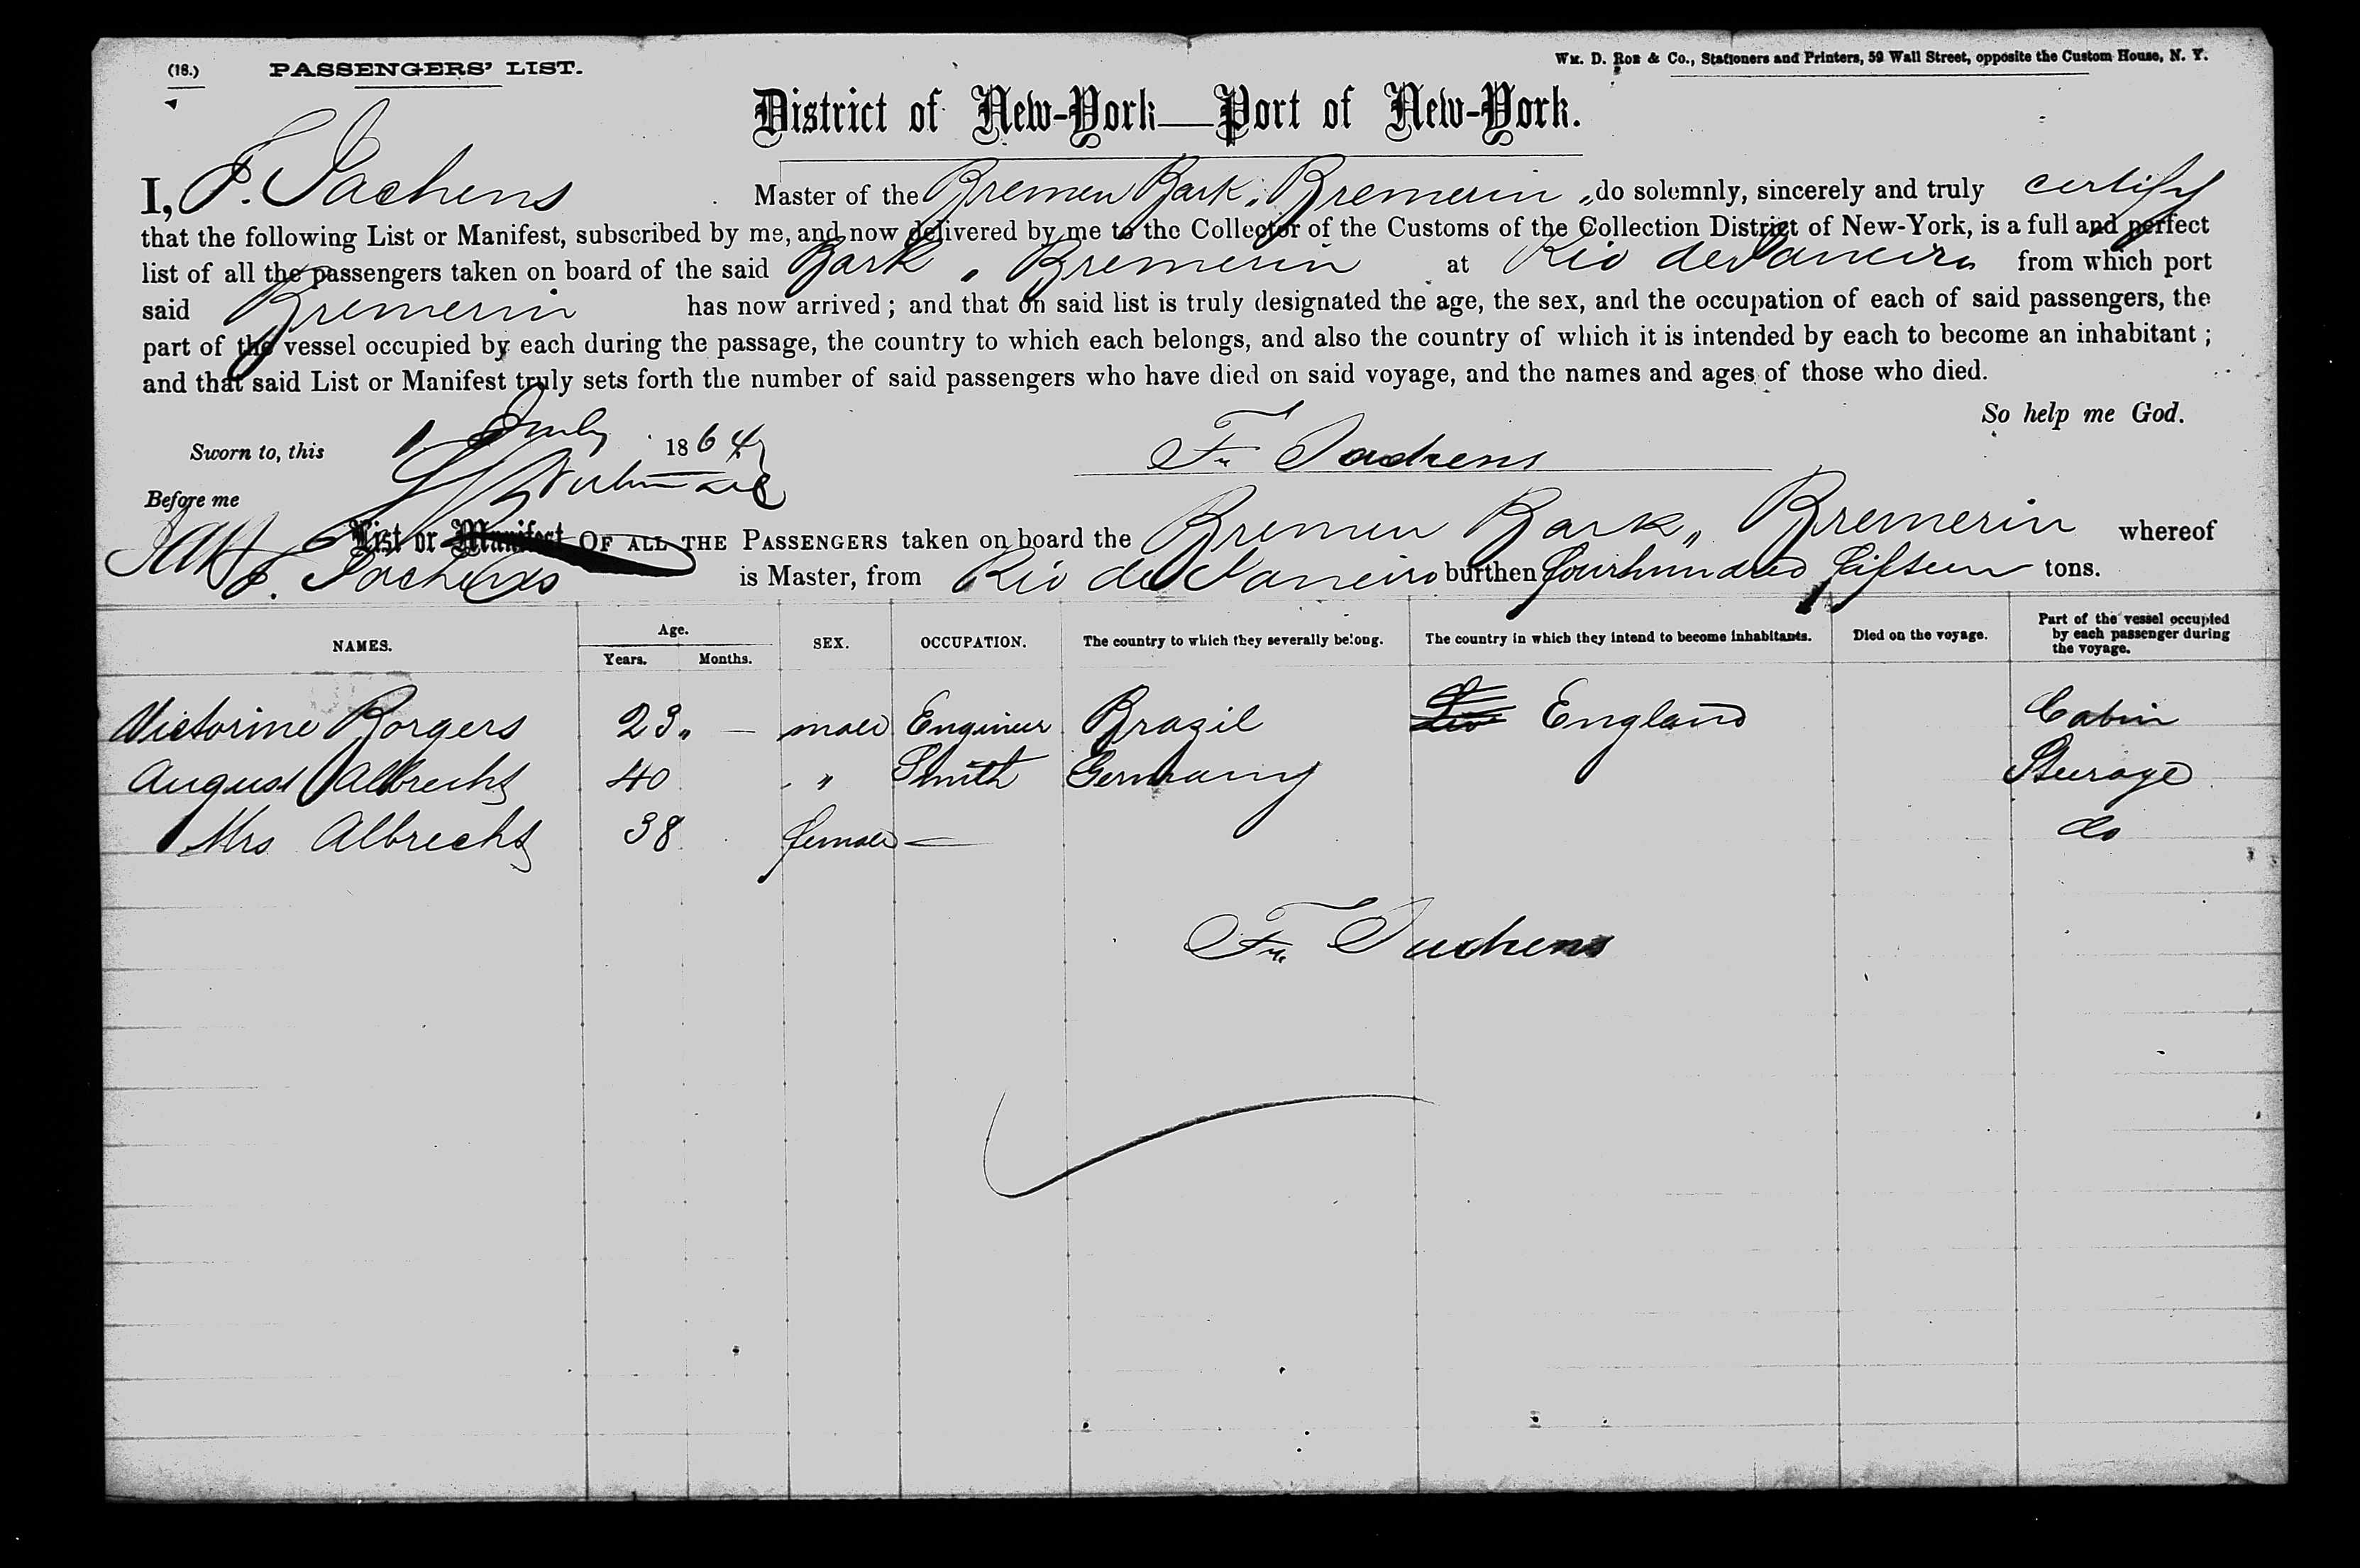 (18.) PASSENGERS' LIST. Wm. D. Roe & Co., Stationers and Printers, 59 Wall Street, opposite the Custom House, N. Y.
District of New-York—Port of New-York.
I, F. Jachens Master of the Bremen Bark „Bremerin„ do solemnly, sincerely and truly certify
that the following List or Manifest, subscribed by me, and now delivered by me to the Collector of the Customs of the Collection District of New-York, is a full and perfect
list of all the passengers taken on board of the said Bark „ Bremerin at Rio de Janeiro from which port
said Bremerin has now arrived; and that on said list is truly designated the age, the sex, and the occupation of each of said passengers, the
part of the vessel occupied by each during the passage, the country to which each belongs, and also the country of which it is intended by each to become an inhabitant;
and that said List or Manifest truly sets forth the number of said passengers who have died on said voyage, and the names and ages of those who died.
So help me God.
Sworn to, this 1 July 1864
Fr Jachens
Before me
List or Manifest OF ALL THE PASSENGERS taken on board the Bremen Bark „ Bremerin whereof
F. Jachens is Master, from Rio de Janeiro burthen fourhundred fifteen tons.
NAMES. Age. Years. Months. SEX. OCCUPATION. The country to which they severally belong. The country in which they intend to become inhabitants. Died on the voyage. Part of the vessel occupied by each passenger during the voyage.
Victorine Borgers 23 „ — male Engineer Brazil England Cabin
August Albrecht 40 " Smith Germany Steerage
Mrs Albrecht 38 female — do
Fr Jachens